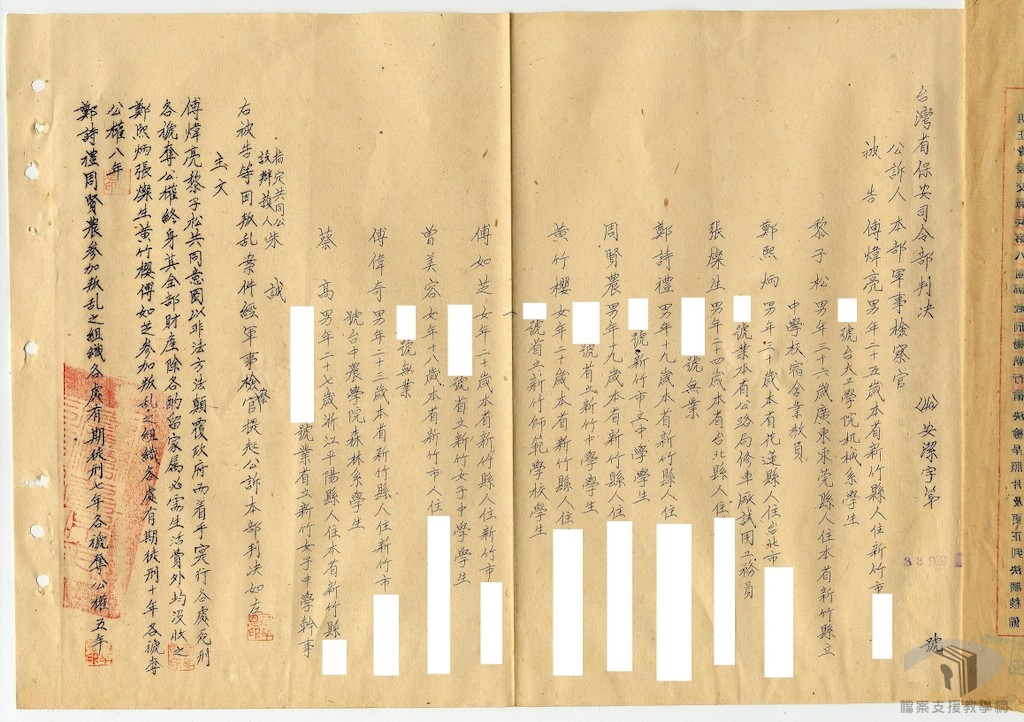 台灣省保安司令部判決
安潔字第 號
公訴人 本部軍事檢察官
被告 傅煒亮 男年二十五歲本省新竹縣人住新竹市
號台大工學院机械系學生
黎子松 男年三十六歲廣東東莞縣人住本省新竹縣立
中學校宿舍業教員
鄭熙炳 男年三十歲本省花蓮縣人住台北市
號業本省公路局修車廠試用工務員
張燦生 男年二十四歲本省台北縣人住
號無業
鄭詩禮 男年十九歲本省新竹縣人住
號新竹市立中學學生
周賢農 男年十九歲本省新竹縣人住
號省立新竹中學學生
黃竹櫻 女年二十歲本省新竹縣人住
號省立新竹師範學校學生
傅如芝 女年二十歲本省新竹縣人住新竹市
號省立新竹女子中學學生
曾美容 女年十八歲本省新竹市人住
號無業
傅偉奇 男年二十三歲本省新竹縣人住新竹市
號台中農學院森林系學生
蔡高 男年二十七歲浙江平陽縣人住本省新竹縣
號業省立新竹女子中學幹事
指定共同公設辯護人 朱誠
右被告等因叛乱案件經軍事檢察官提起公訴本部判決如左
主文
傅煒亮黎子松共同意圖以非法方法顛覆政府而着手实行各處死刑
各褫奪公權終身其全部財產除各酌留家屬必需生活費外均沒收之
鄭熙炳張燦生黃竹櫻傅如芝參加叛乱之組織各處有期徒刑十年各褫奪
公權八年
鄭詩禮周賢農參加叛乱之組織各處有期徒刑七年各褫奪公權五年
檔案支援教學網